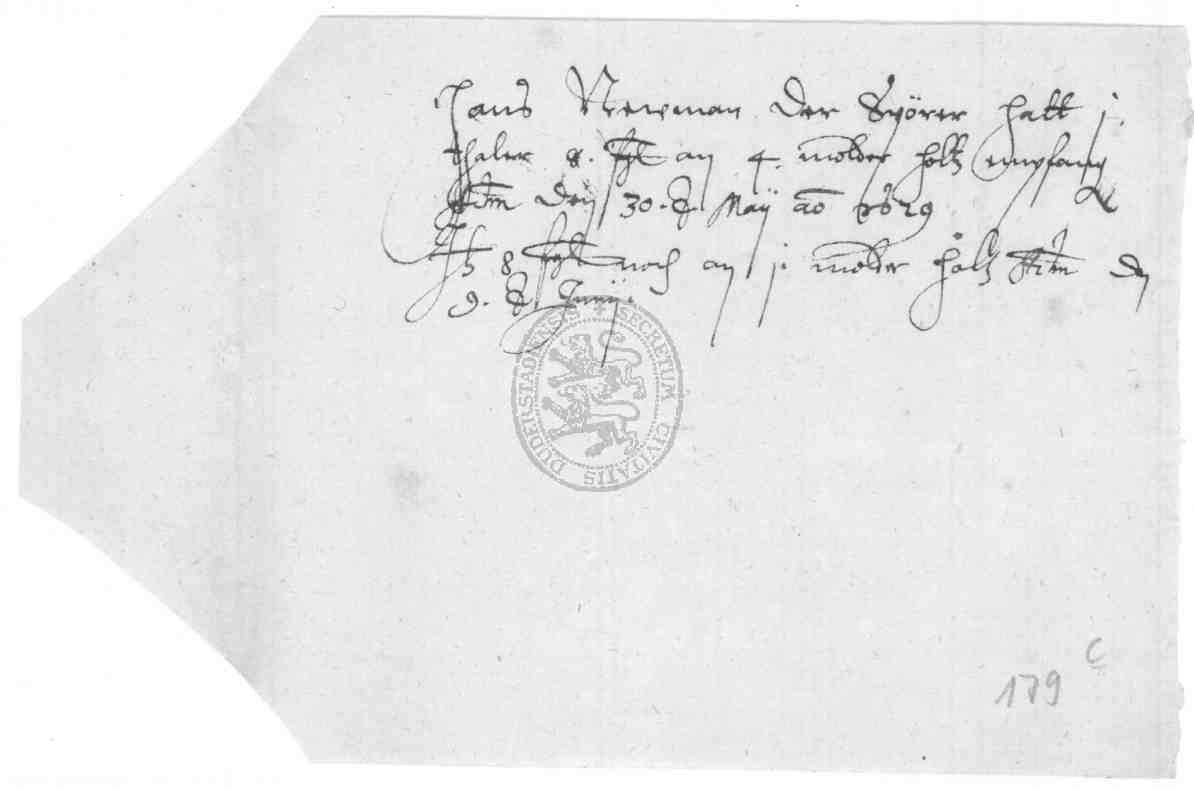 Hans Newman der Spörer hatt j.
thaler 8. fgl an 4. molder holtz empfang
den 30. Maÿ ao 1629
8 fgl noch an j. molder holtz den
9. Junÿ.
SECRETUM CIVITATIS DUDERSTADENSIS
179 c